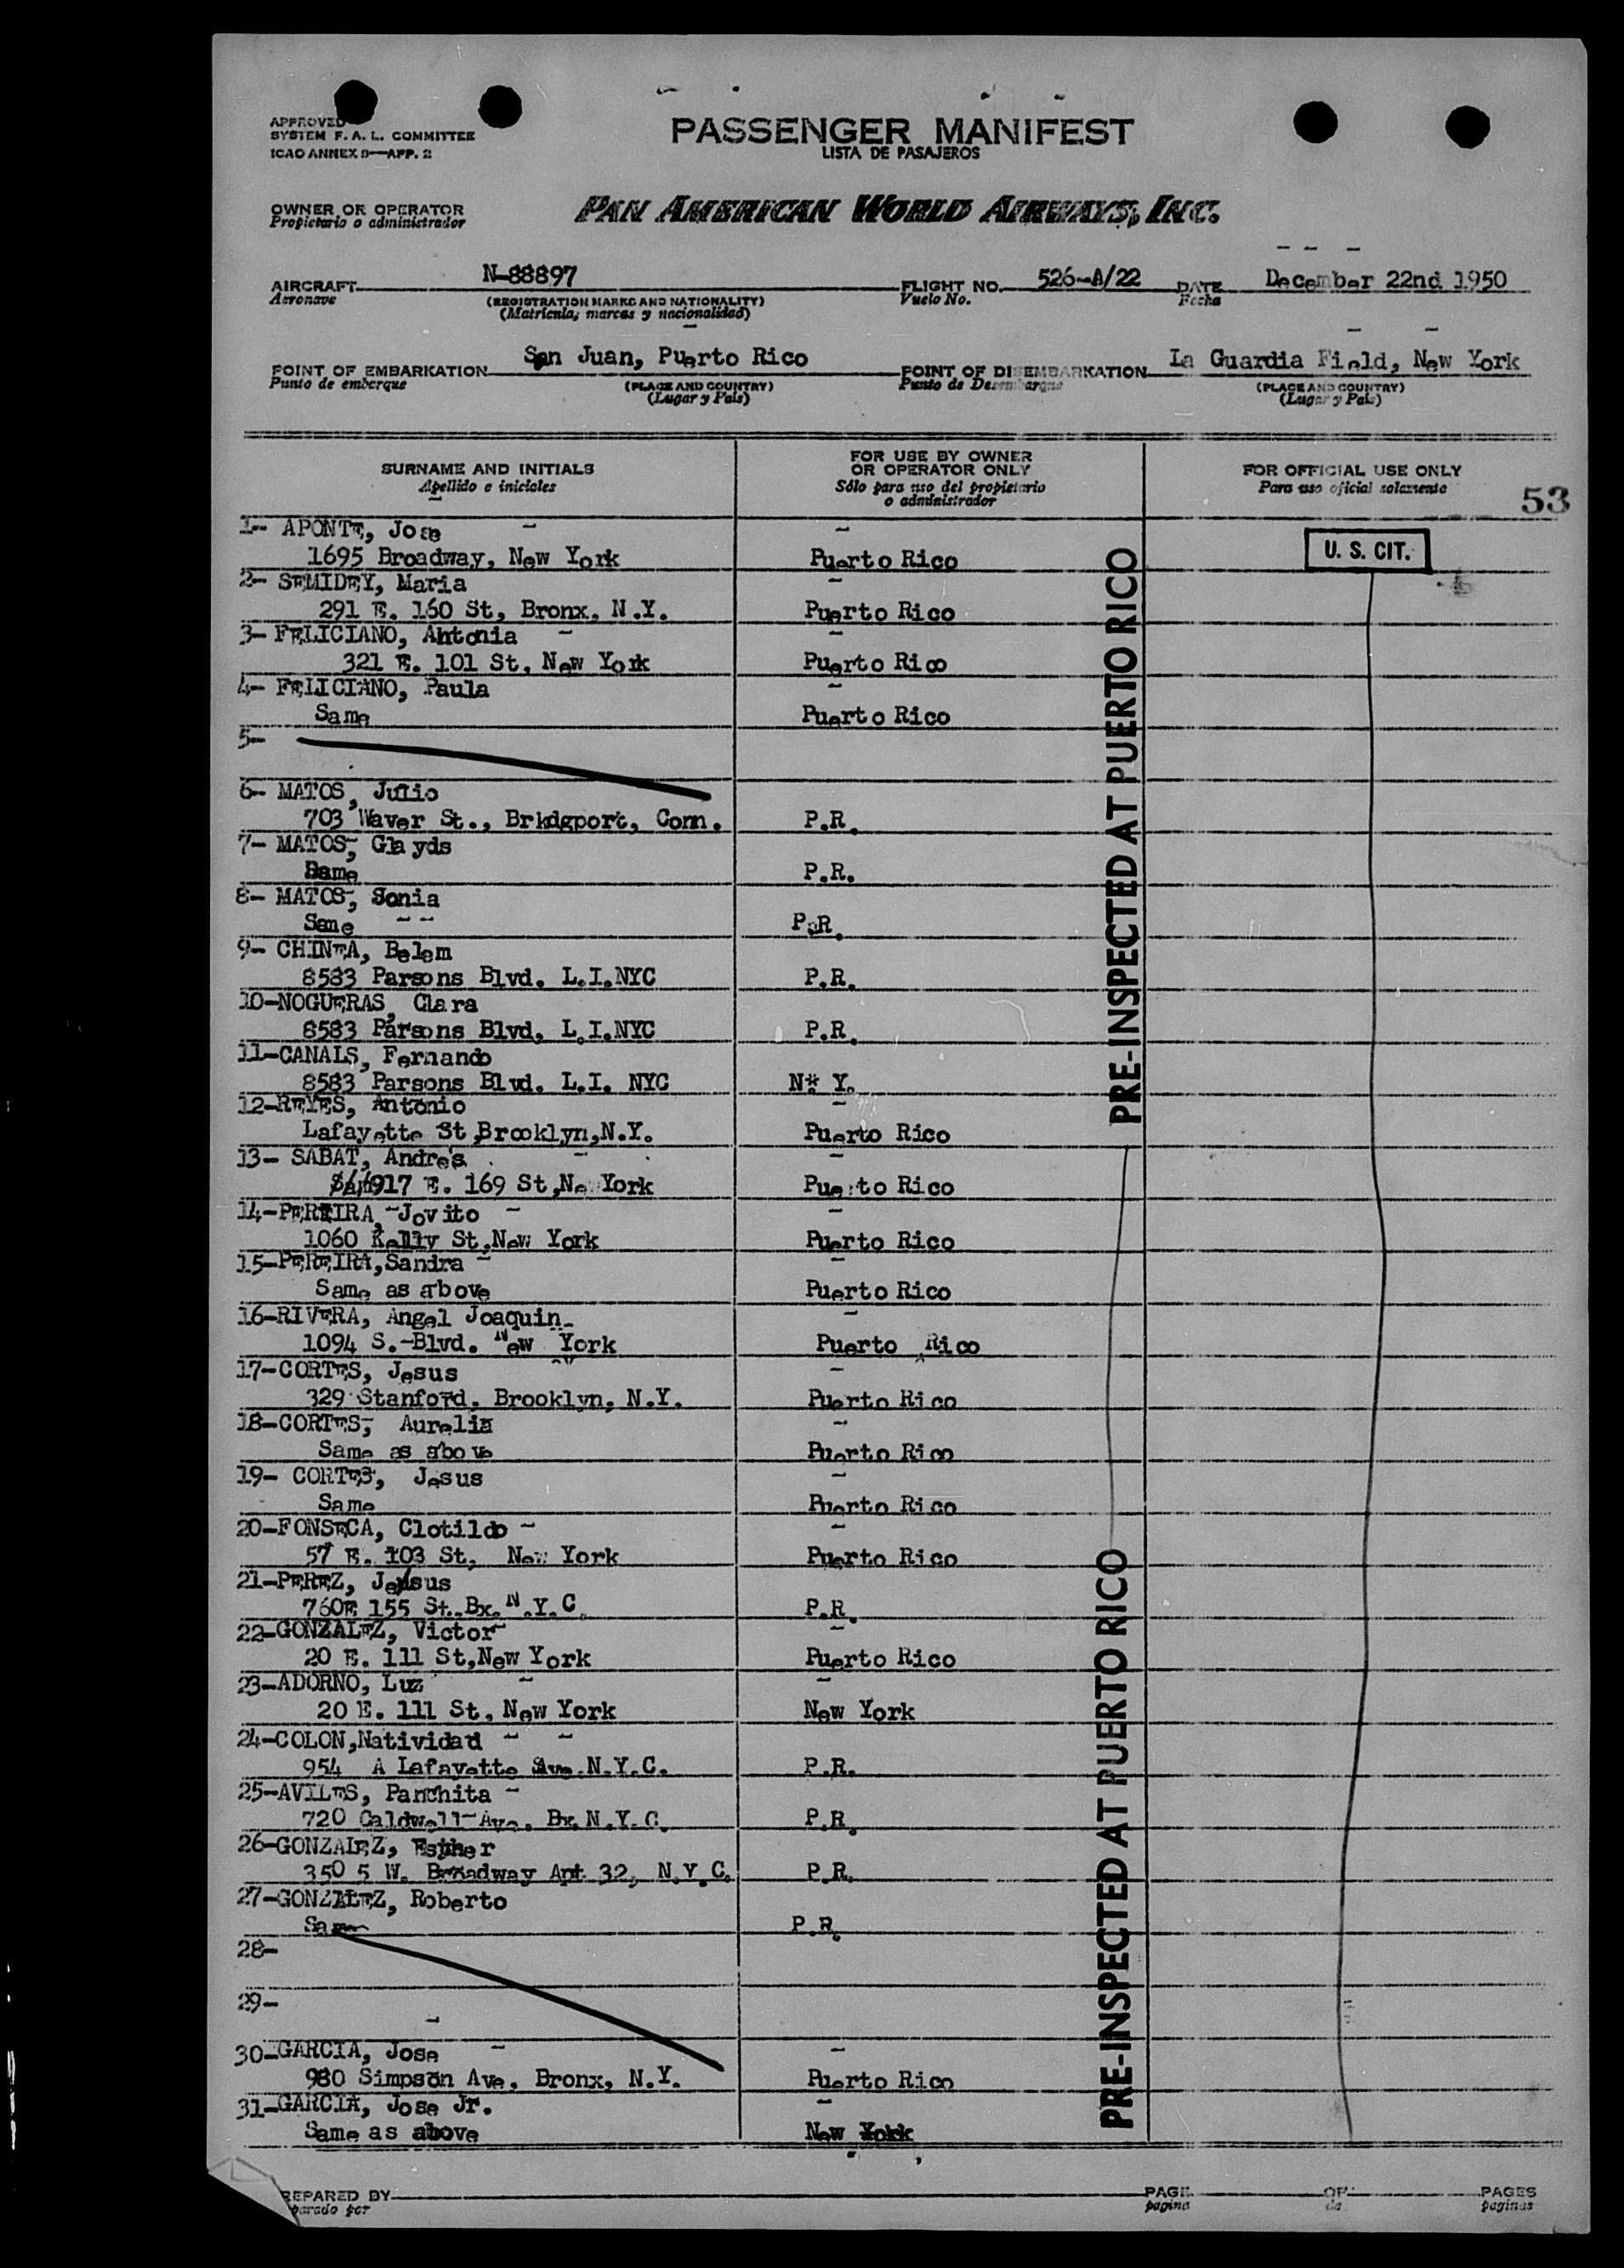 APPROVED
SYSTEM F. A. L. COMMITTEE
ICAO ANNEX 9—APP. 2
PASSENGER MANIFEST
LISTA DE PASAJEROS
OWNER OR OPERATOR
Propietario o administrador
PAN AMERICAN WORLD AIRWAYS, INC.
AIRCRAFT N-88897 FLIGHT NO. 526-A/22 DATE December 22nd 1950
Aeronave (REGISTRATION MARKS AND NATIONALITY) Vuelo No. Fecha
(Matricula, marcas y nacionalidad)
POINT OF EMBARKATION San Juan, Puerto Rico POINT OF DISEMBARKATION La Guardia Field, New York
Punto de emberque (PLACE AND COUNTRY) Punto de Desembarque (PLACE AND COUNTRY)
(Lugar y Pais) (Lugar y Pais)
SURNAME AND INITIALS FOR USE BY OWNER OR OPERATOR ONLY FOR OFFICIAL USE ONLY
Apellido e iniciales Sólo para uso del propietario o administrador Para uso oficial solamente
53
1- APONTE, Jose
1695 Broadway, New York Puerto Rico U. S. CIT.
2- SEMIDEY, Maria
291 E. 160 St, Bronx, N.Y. Puerto Rico
3- FELICIANO, Antonia
321 E. 101 St, New York Puerto Rico
4- FELICIANO, Paula
Same Puerto Rico
5-
6- MATOS, Julio
703 Waver St., Brkdgport, Conn. P.R.
7- MATOS, Glayds
Same P.R.
8- MATOS, Sonia
Same P.R.
9- CHINEA, Belem
8583 Parsons Blvd. L.I.NYC P.R.
10-NOGUERAS, Clara
8583 Parsons Blvd. L.I.NYC P.R.
11-CANALS, Fernando
8583 Parsons Blvd. L.I. NYC N* Y.
12-REYES, Antonio
Lafayette St,Brooklyn,N.Y. Puerto Rico
13- SABAT, Andres
917 E. 169 St,Ne York Pue to Rico
14-PEREIRA, Jovito
1060 Kelly St,New York Puerto Rico
15-PEREIRA,Sandra
Same as above Puerto Rico
16-RIVERA, Angel Joaquin
1094 S.-Blvd. New York Puerto Rico
17-CORTES, Jesus
329 Stanford, Brooklyn, N.Y. Puerto Rico
18-CORTES, Aurelia
Same as above Puerto Rico
19- CORTES, Jesus
Same Puerto Rico
20-FONSECA, Clotildo
57 E. 103 St, New York Puerto Rico
21-PEREZ, Jesus
760E 155 St.Bx. N.Y.C. P.R.
22-GONZALEZ, Victor
20 E. 111 St,New York Puerto Rico
23-ADORNO, Luz
20 E. 111 St, New York New York
24-COLON,Natividad
954 A Lafayette Ave.N.Y.C. P.R.
25-AVILES, Panchita
720 Caldwell Ave. Bx.N.Y.C. P.R.
26-GONZALEZ, Esther
350 5 W. Broadway Apt 32, N.Y.C. P.R.
27-GONZALEZ, Roberto
Same P.R.
28-
29-
30-GARCIA, Jose
980 Simpson Ave. Bronx, N.Y. Puerto Rico
31-GARCIA, Jose Jr.
Same as above New York
PRE-INSPECTED AT PUERTO RICO
PRE-INSPECTED AT PUERTO RICO
REPARED BY PAGE OF PAGES
parado por pagina de paginas